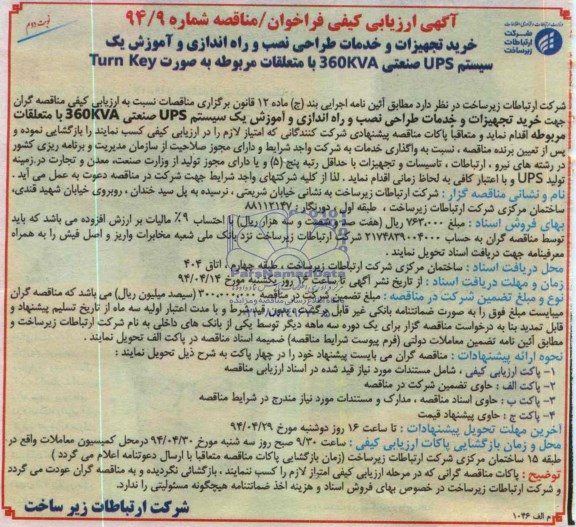 نوبت دوم
وزارت ارتباطات و فناوری اطلاعات
شرکت ارتباطات زیرساخت
آگهی ارزیابی کیفی فراخوان/مناقصه شماره ۹۴/۹
خرید تجهیزات و خدمات طراحی نصب و راه اندازی و آموزش یک
سیستم UPS صنعتی 360KVA با متعلقات مربوطه به صورت Turn Key
شرکت ارتباطات زیرساخت در نظر دارد مطابق آئین نامه اجرایی بند (ج) ماده ۱۲ قانون برگزاری مناقصات نسبت به ارزیابی کیفی مناقصه گران
جهت خرید تجهیزات و خدمات طراحی نصب و راه اندازی و آموزش یک سیستم UPS صنعتی 360KVA با متعلقات
مربوطه اقدام نماید و متعاقباً پاکات مناقصه پیشنهادی شرکت کنندگانی که امتیاز لازم را در ارزیابی کیفی کسب نمایند را بازگشایی نموده و
پس از تعیین برنده مناقصه ، نسبت به واگذاری خدمات به شرکت واجد شرایط و دارای مجوز صلاحیت از سازمان مدیریت و برنامه ریزی کشور
در رشته های نیرو ، ارتباطات ، تاسیسات و تجهیزات با حداقل رتبه پنج (۵) و یا دارای مجوز تولید از وزارت صنعت، معدن و تجارت در زمینه
تولید UPS و با اعتبار کافی به لحاظ زمانی اقدام نماید . لذا از کلیه شرکتهای واجد شرایط جهت شرکت در مناقصه دعوت به عمل می آید .
نام و نشانی مناقصه گزار : شرکت ارتباطات زیرساخت به نشانی خیابان شریعتی ، نرسیده به پل سید خندان ، روبروی خیابان شهید قندی،
ساختمان مرکزی شرکت ارتباطات زیرساخت ، طبقه اول ، دورنگار : ۸۸۱۱۲۱۴۷
بهای فروش اسناد : مبلغ ۷۶۳,۰۰۰ ریال (هفت صد و شصت و سه هزار ریال) با احتساب ۹٪ مالیات بر ارزش افزوده می باشد که باید
توسط مناقصه گران به حساب ۲۱۷۴۸۳۹۰۰۴۰۰۰ شرکت ارتباطات زیرساخت نزد بانک ملی شعبه مخابرات واریز و اصل فیش را به همراه
معرفینامه جهت دریافت اسناد تحویل نمایند .
محل دریافت اسناد : ساختمان مرکزی شرکت ارتباطات زیرساخت ، طبقه چهارم ، اتاق ۴۰۴
زمان و مهلت دریافت اسناد : از تاریخ نشر آگهی تا ساعت روز یکشنبه مورخ ۹۴/۰۴/۱۴
نوع و مبلغ تضمین شرکت در مناقصه : مبلغ تضمین ۳۰۰,۰۰۰,۰۰۰ (سیصد میلیون ریال) می باشد که مناقصه گران
میبایست مبلغ فوق را به صورت ضمانتنامه بانکی غیر قابل برگشت بدون قید و شرط و با مدت اعتبار اولیه سه ماه از تاریخ تسلیم پیشنهاد و
قابل تمدید بنا به درخواست مناقصه گزار برای یک دوره سه ماهه دیگر توسط یکی از بانک های داخلی به نام شرکت ارتباطات زیرساخت و
مطابق آئین نامه تضمین معاملات دولتی (فرم پیوست شرایط مناقصه) ضمیمه اسناد مناقصه در پاکت الف تحویل نمایند .
نحوه ارائه پیشنهادات : مناقصه گران می بایست پیشنهاد خود را در چهار پاکت به شرح ذیل تحویل نمایند :
۱- پاکت ارزیابی کیفی ، شامل مستندات مورد نیاز قید شده در اسناد ارزیابی مناقصه
۲- پاکت الف : حاوی تضمین شرکت در مناقصه
۳- پاکت ب : حاوی اسناد مناقصه ، مدارک و مستندات مورد نیاز مندرج در شرایط مناقصه
۴- پاکت ج : حاوی پیشنهاد قیمت
آخرین مهلت تحویل پیشنهادات : تا ساعت ۱۶ روز دوشنبه مورخ ۹۴/۰۴/۲۹
محل و زمان بازگشایی پاکات ارزیابی کیفی : ساعت ۹/۳۰ صبح روز سه شنبه مورخ ۹۴/۰۴/۳۰ درمحل کمیسیون معاملات واقع در
طبقه ۱۵ ساختمان مرکزی شرکت ارتباطات زیرساخت (زمان بازگشایی پاکات مناقصه متعاقباً با ارسال دعوتنامه اعلام می گردد )
توضیح : پاکات مناقصه گرانی که در مرحله ارزیابی کیفی امتیاز لازم را کسب ننمایند ، بازگشائی نگردیده و به مناقصه گران عودت می گردد
و شرکت ارتباطات زیرساخت در خصوص بهای فروش اسناد و هزینه اخذ ضمانتنامه هیچگونه مسئولیتی را ندارد.
شرکت ارتباطات زیر ساخت
م الف ۱۰۳۶
ParsNamadData